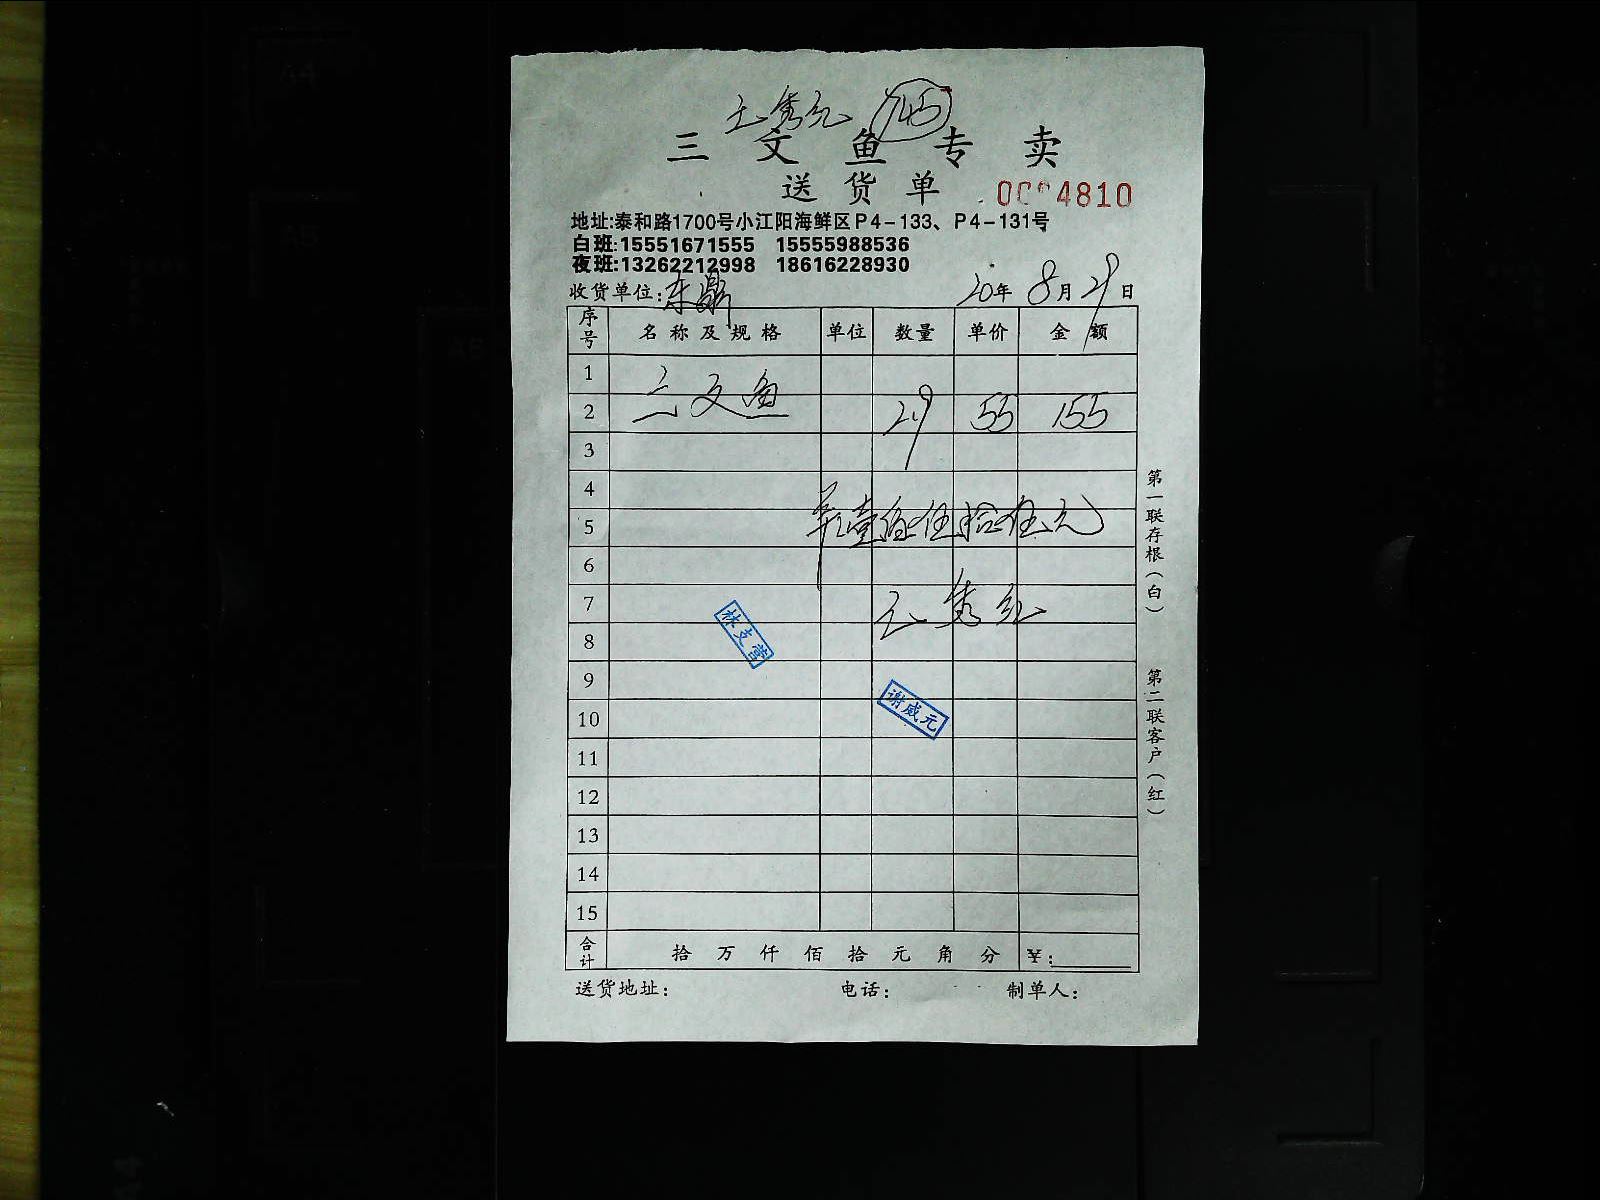 王秀红 145
三文鱼专卖
送货单 4810
地址:泰和路1700号小江阳海鲜区P4-133、P4-131号
白班:15551671555 15555988536
夜班:13262212998 18616228930
收货单位:东鼎 20年 8月 29日
序号 名称及规格 单位 数量 单价 金额
1
2 三文鱼 2.9 55 155
3
4
5 壹佰伍拾伍元
6
7 王秀红
8 林支营
9
10 谢威元
11
12
13
14
15
合计 拾 万 仟 佰 拾 元 角 分 ¥:
送货地址: 电话: 制单人:
第一联存根(白)
第二联客户(红)
A4
A5